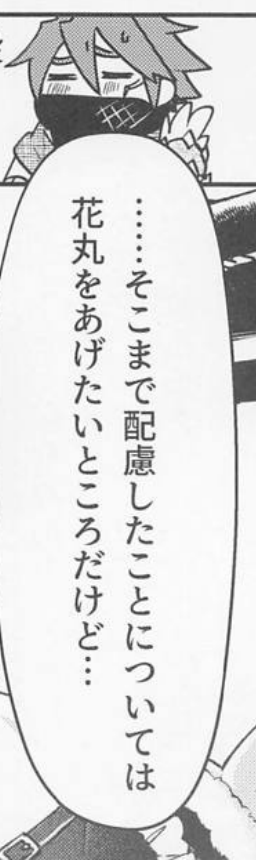 ……そこまで配慮したことについては
花丸をあげたいところだけど…